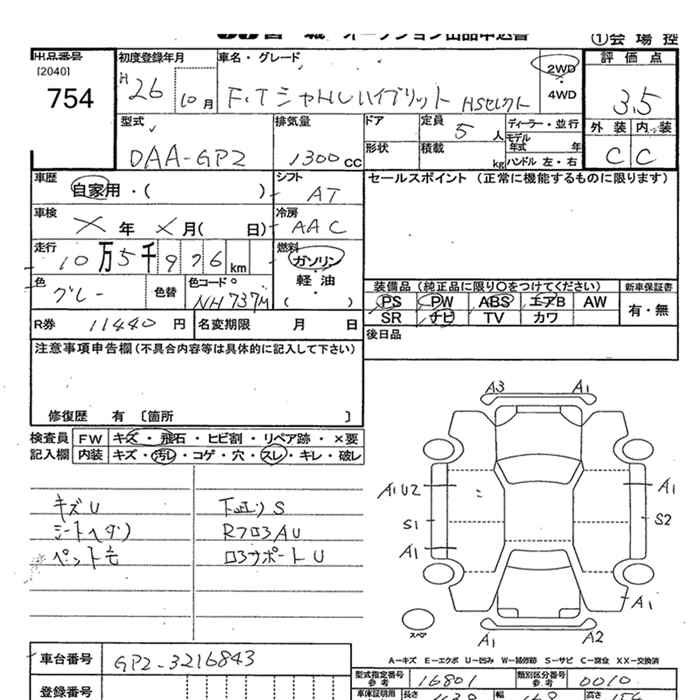 宮城 オークション出品申込書
①会場控
出品番号
[2040]
754
初度登録年月
H 26 10月
車名・グレード
F.Tシャトルハイブリット HSセレクト
2WD
・
4WD
評価点
3.5
外装 内装
C C
型式
DAA-GP2
排気量
1300cc
ドア
形状
定員 5人
積載 kg
ディーラー・並行
モデル
年式 年
ハンドル 左・右
車歴
自家用・( )
シフト
AT
セールスポイント (正常に機能するものに限ります)
車検
X年 X月( 日)
冷房
AAC
走行
10万5千976km
燃料
ガソリン
・
軽油
( )
色
グレー
色替
色コード
NH737M
装備品 (純正品に限り〇をつけてください)
新車保証書
PS PW ABS エアB AW
SR ナビ TV カワ
有・無
R券 11440円
名変期限 月 日
後日品
注意事項申告欄 (不具合内容等は具体的に記入して下さい)
修復歴 有 〔箇所 〕
検査員
記入欄
FW キズ・飛石・ヒビ割・リペア跡・×要
内装 キズ・汚レ・コゲ・穴・スレ・キレ・破レ
キズU
シートヘタリ
下回りS
RフロアU
コアサポートU
A3 A1
A1U2 A1
S1 S2
A1
A1
A1 A2
スペア
A-キズ E-エクボ U-凹み W-補修跡 S-サビ C-腐食 XX-交換済
車台番号
GP2-3216843
登録番号
型式指定番号
参考
16801
類別区分番号
参考
0010
車庫証明用
長さ
幅
高さ